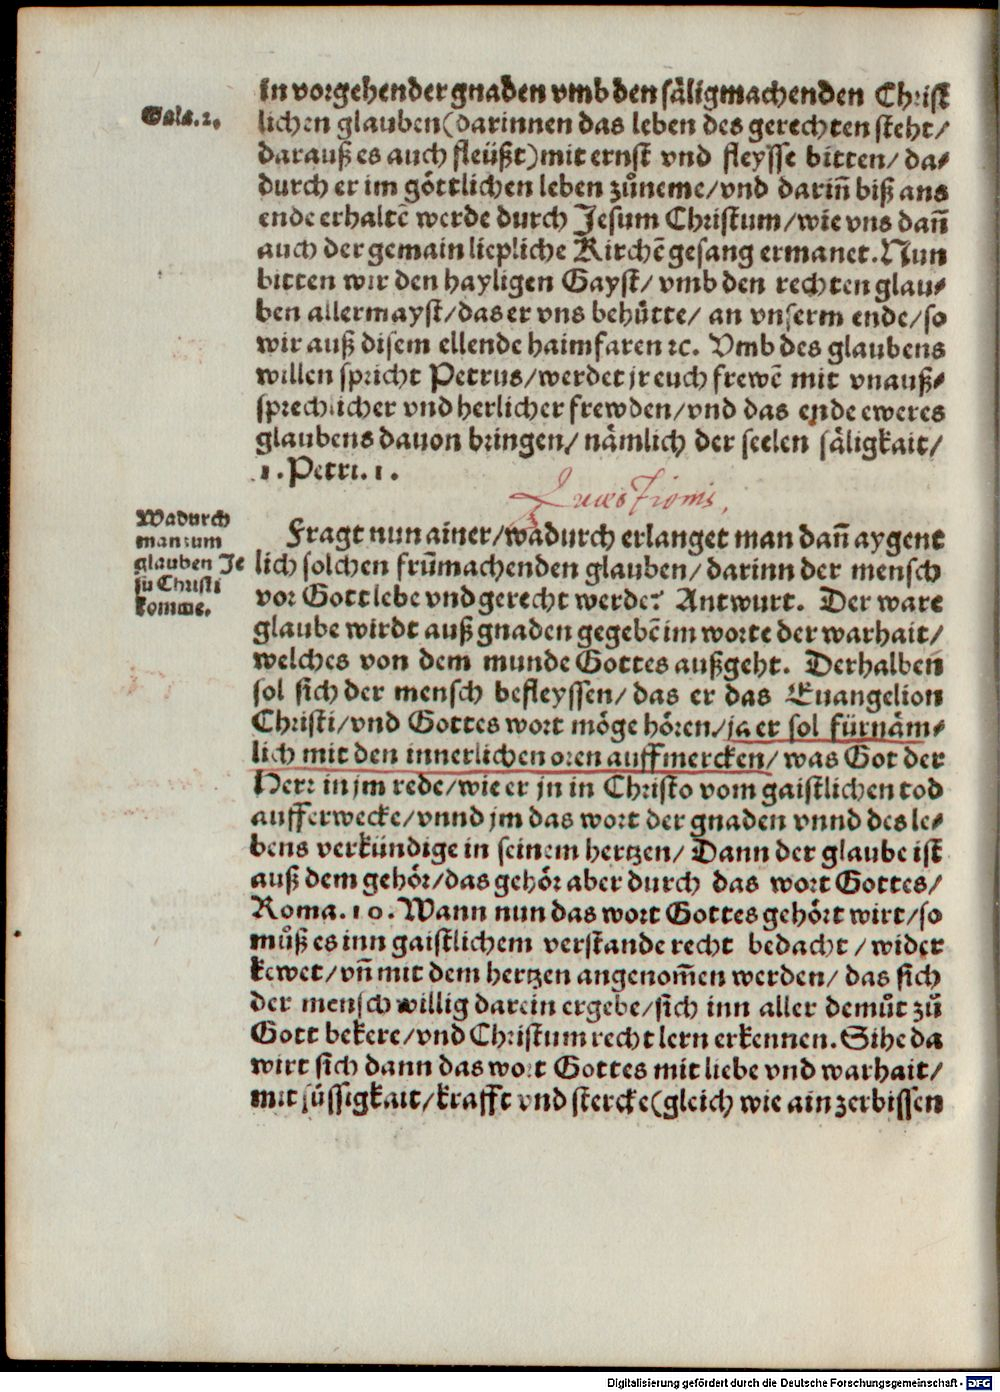 in vorgehender gnaden vmb den säligmachenden Christ
Gala. 2.
lichen glauben (darinnen das leben des gerechten steht/
darauß es auch fleüßt) mit ernst vnd fleysse bitten/ da⸗
durch er im göttlichen leben zůneme/ vnd dariñ biß ans
ende erhaltẽ werde durch Jesum Christum/ wie vns dañ
auch der gemain liepliche Kirchẽ gesang ermanet. Nun
bitten wir den hayligen Gayst/ vmb den rechten glau⸗
ben allermayst/ das er vns behütte/ an vnserm ende/ so
wir auß disem ellende haimfaren ꝛc. Vmb des glaubens
willen spricht Petrus/ werdet jr euch frewẽ mit vnauß⸗
sprechlicher vnd herlicher frewden/ vnd das ende eweres
glaubens dauon bringen/ nämlich der seelen säligkait/
1. Petri. 1.
Quaestionis,
Wadurch
man zum
glauben Je
su Christi
komme.
Fragt nun ainer/ wadurch erlanget man dañ aygent
lich solchen frũmachenden glauben/ darinn der mensch
vor Gott lebe vnd gerecht werde? Antwurt. Der ware
glaube wirdt auß gnaden gegebẽ im worte der warhait/
welches von dem munde Gottes außgeht. Derhalben
sol sich der mensch befleyssen/ das er das Euangelion
Christi/ vnd Gottes wort möge hören/ ja er sol fürnäm⸗
lich mit den innerlichen oren auffmercken/ was Got der
Herr in jm rede/ wie er jn in Christo vom gaistlichen tod
aufferwecke/ vnnd jm das wort der gnaden vnnd des le⸗
bens verkündige in seinem hertzen/ Dann der glaube ist
auß dem gehör/ das gehör aber durch das wort Gottes/
Roma. 10. Wann nun das wort Gottes gehört wirt/ so
můß es inn gaistlichem verstande recht bedacht/ wider
kewet/ vñ mit dem hertzen angenom̃en werden/ das sich
der mensch willig darein ergebe/ sich inn aller demůt zů
Gott bekere/ vnd Christum recht lern erkennen. Sihe da
wirt sich dann das wort Gottes mit liebe vnd warhait/
mit süssigkait/ krafft vnd stercke (gleich wie ain zerbissen
Digitalisierung gefördert durch die Deutsche Forschungsgemeinschaft - DFG